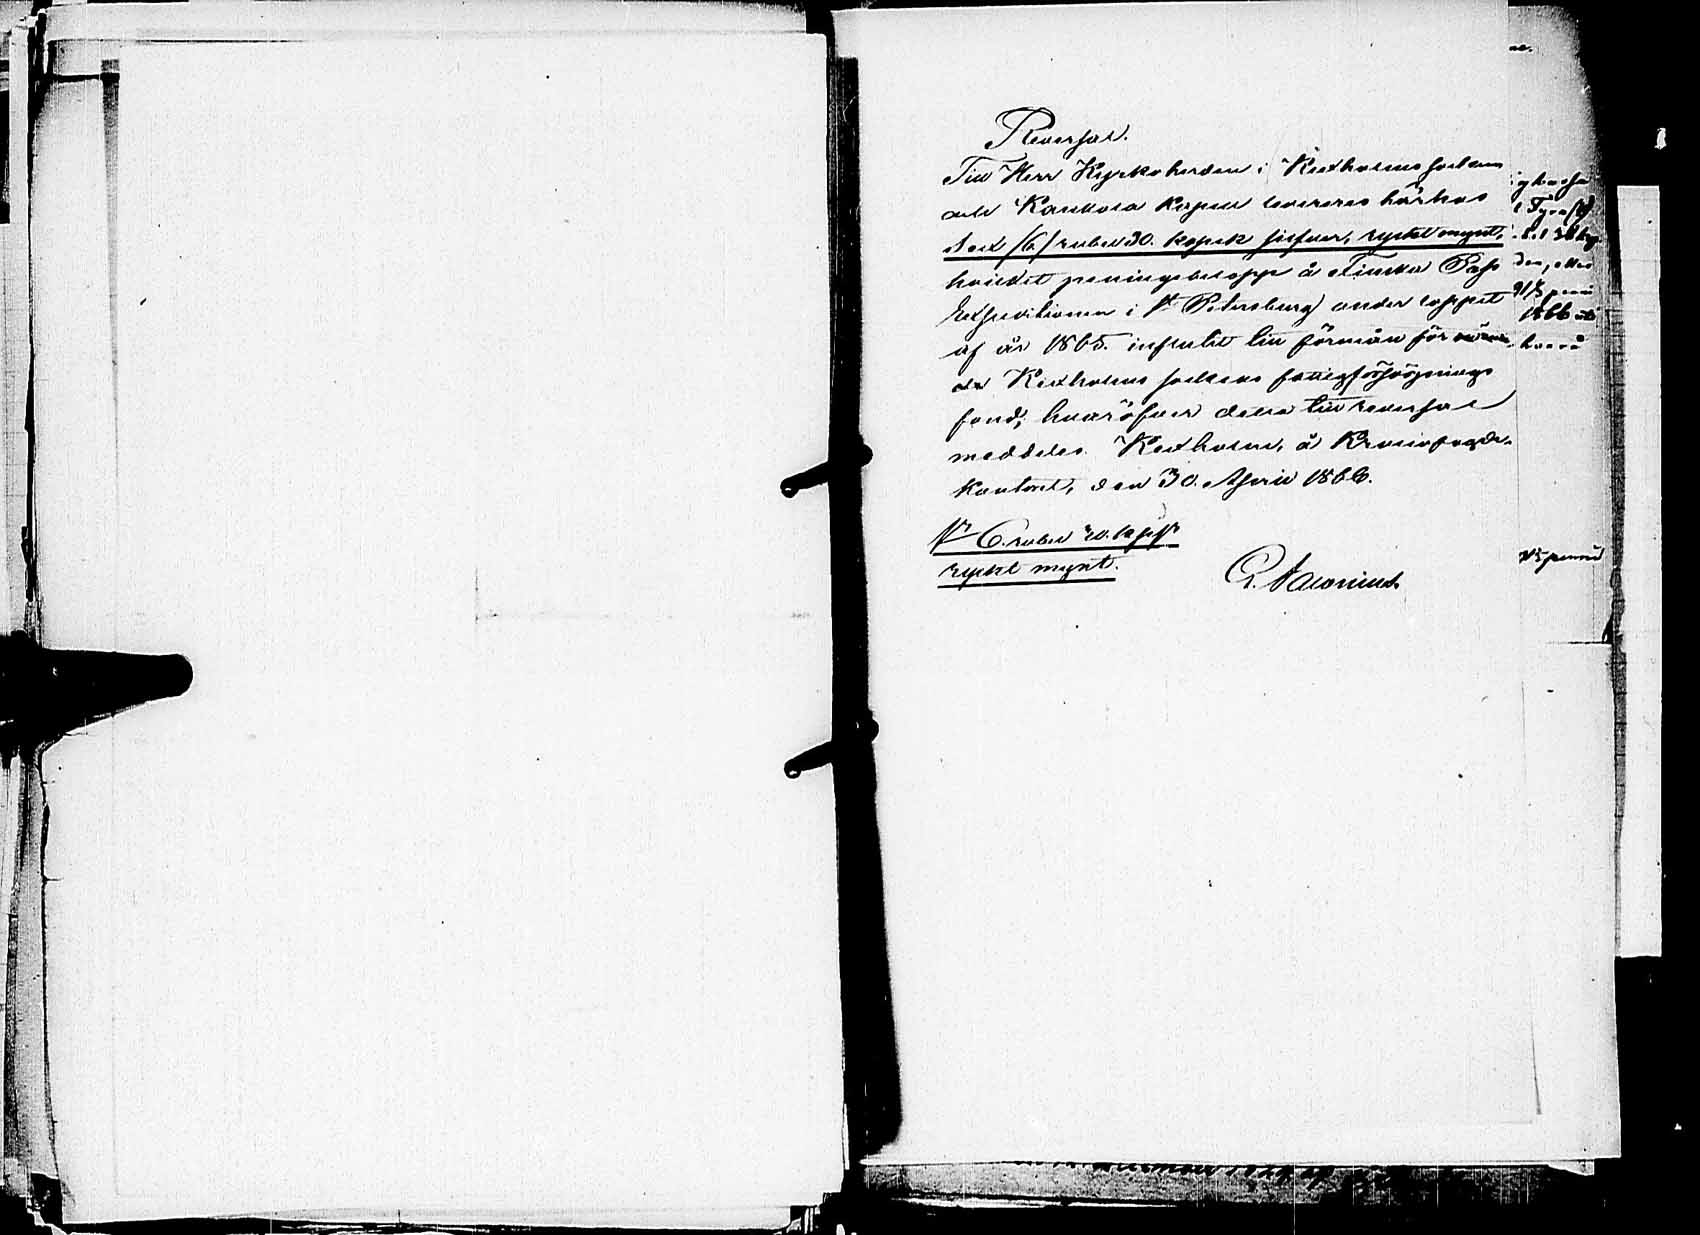 Reversal.
Till Herr Kyrkoherden i Kexholms socken
och Kaukola Kapell levereras härhos
Sex /6/ rubel 30. kopek silfver, ryskt mynt,
hvilket penningebelopp å Finska Pass
Expeditionen i St Petersburg under loppet
af år 1865. influtit till förmån för
Kexholms sockens fattigförsörjnings
fond, hvaröfver detta till reversal
meddelas. Kexholm, å Kronofogde-
kontoret, den 30. April 1866.
Sr 6. rubel 30. kop Sr
ryskt mynt.
1866
penni